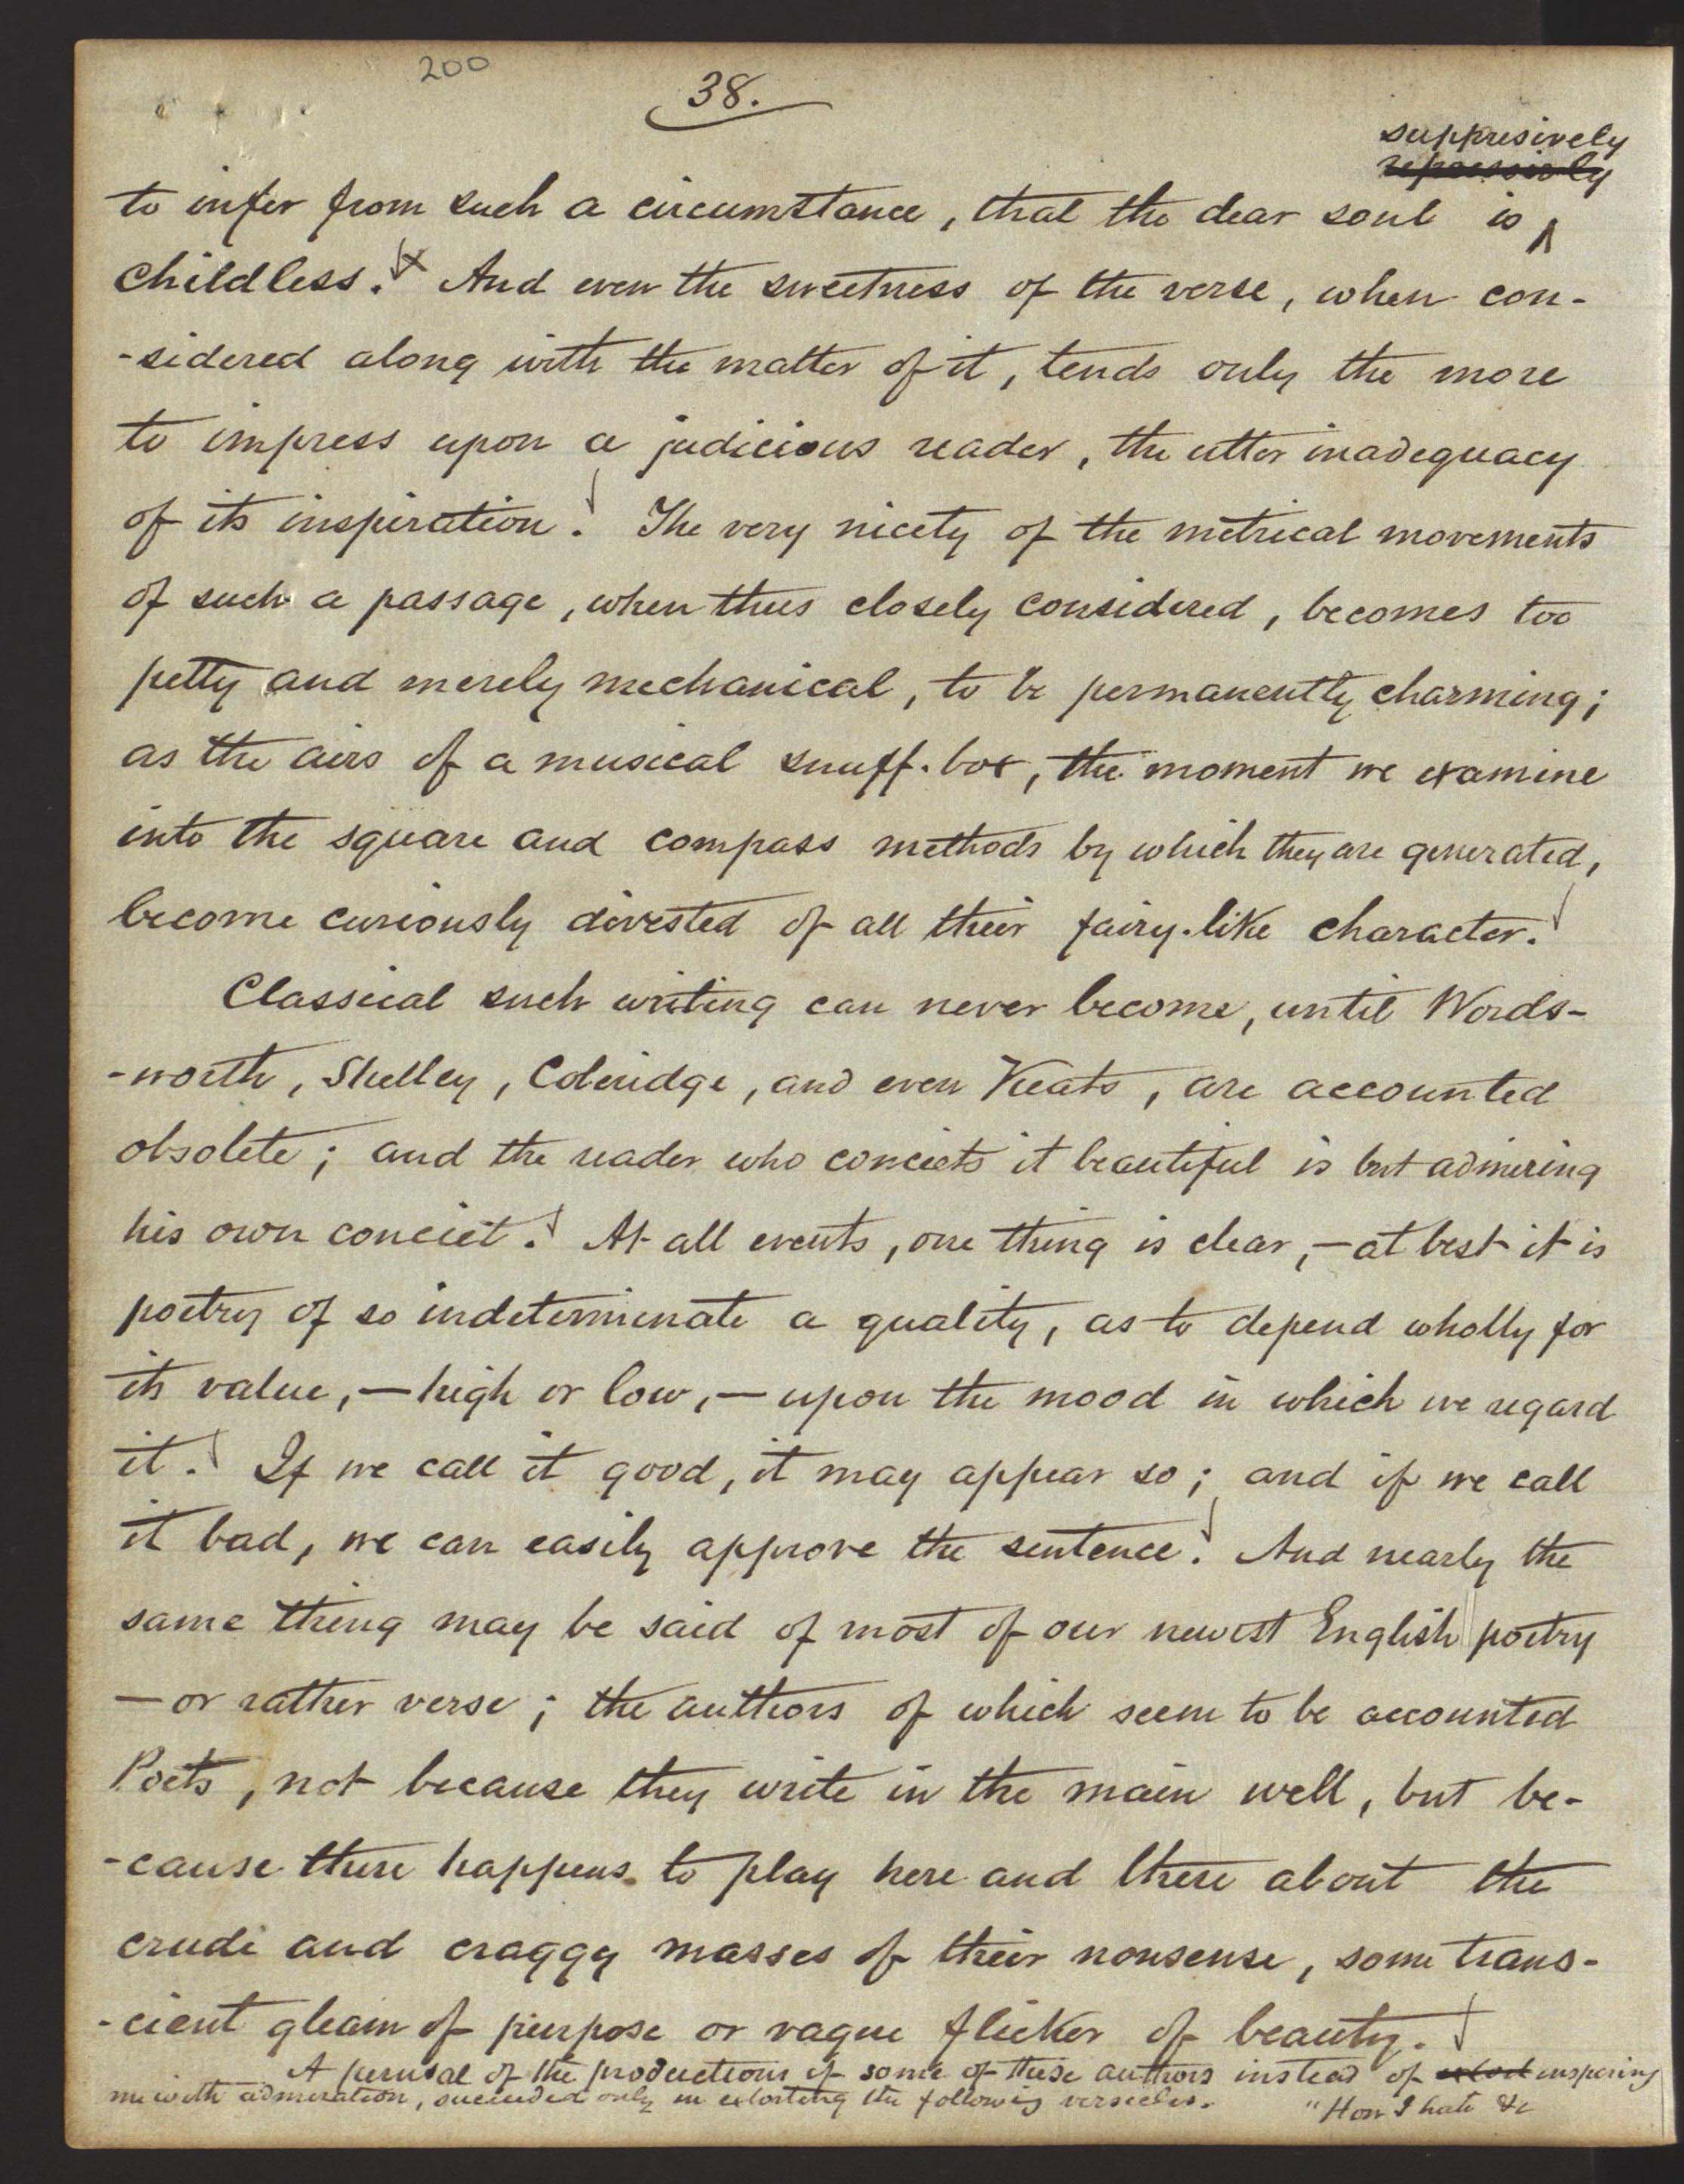 200
38.
suppresively
repressively
to infer from such a circumstance, that the dear soul is ^
childless. And even the sweetness of the verse, when con-
-sidered along with the matter of it, tends only the more
to impress upon a judicious reader, the utter inadequacy
of its inspiration. The very nicety of the metrical movements
of such a passage, when thus closely considered, becomes too
petty and merely mechanical, to be permanently charming;
as the airs of a musical snuff-box, the moment we examine
into the square and compass methods by which they are generated,
become curiously divested of all their fairy-like character.
Classical such writing can never become, until Words-
-worth, Shelley, Coleridge, and even Keats, are accounted
obsolete; and the reader who conceits it beautiful is but admiring
his own conceit. At all events, one thing is clear,—at best it is
poetry of so indeterminate a quality, as to depend wholly for
its value,—high or low,—upon the mood in which we regard
it. If we call it good, it may appear so; and if we call
it bad, we can easily approve the sentence. And nearly the
same thing may be said of most of our newest English poetry
—or rather verse; the authors of which seem to be accounted
Poets, not because they write in the main well, but be-
-cause there happens to play here and there about the
crude and craggy masses of their nonsense, some trans-
-cient gleam of purpose or vague flicker of beauty.
A perusal of the productions of some of these authors instead of extort inspiring
me with admiration, succeeded only in extorting the following versicles. "How I hate &c